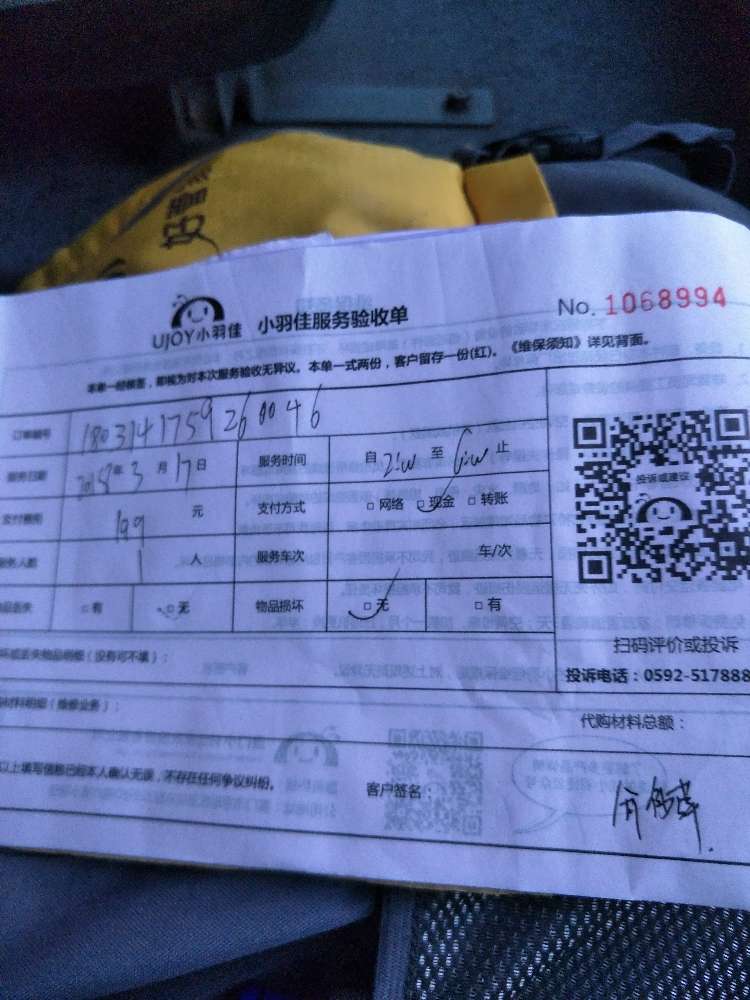 好
UJOY小羽佳 小羽佳服务验收单 No. 1068994
本单一经核签，即视为对本次服务验收无异议。本单一式两份，客户留存一份(红)。《维保须知》详见背面。
订单编号 180314175926 0046
服务日期 2018年 3 月 17 日 服务时间 自 至 止
支付费用 199 元 支付方式 □ 网络 □ 现金 □ 转账
服务人数 1 人 服务车次 车/次
物品丢失 □ 有 □ 无 物品损坏 □ 无 □ 有
投诉或建议
扫码评价或投诉
坏或丢失物品明细（没有可不填）：
投诉电话：0592-517888
材料明细（维修业务）：
代购材料总额：
以上填写信息已经本人确认无误，不存在任何争议纠纷。 客户签名：